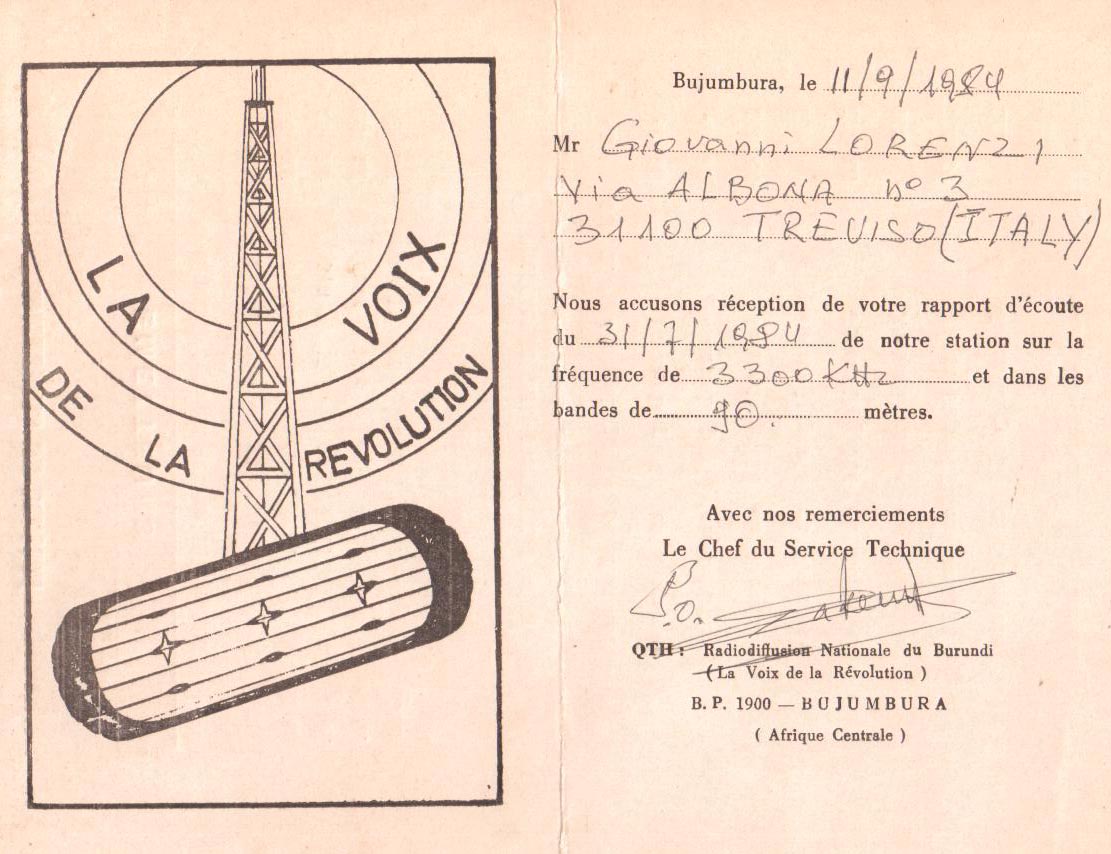 LA VOIX
DE LA REVOLUTION
Bujumbura, le 11/9/1984
Mr Giovanni LORENZI
Via ALBONA n° 3
31100 TREVISO (ITALY)
Nous accusons réception de votre rapport d'écoute
du 31/7/1984 de notre station sur la
fréquence de 3300 KHz et dans les
bandes de 90. mètres.
Avec nos remerciements
Le Chef du Service Technique
P.o.
QTH : Radiodiffusion Nationale du Burundi
(La Voix de la Révolution )
B.P. 1900 — BUJUMBURA
( Afrique Centrale )